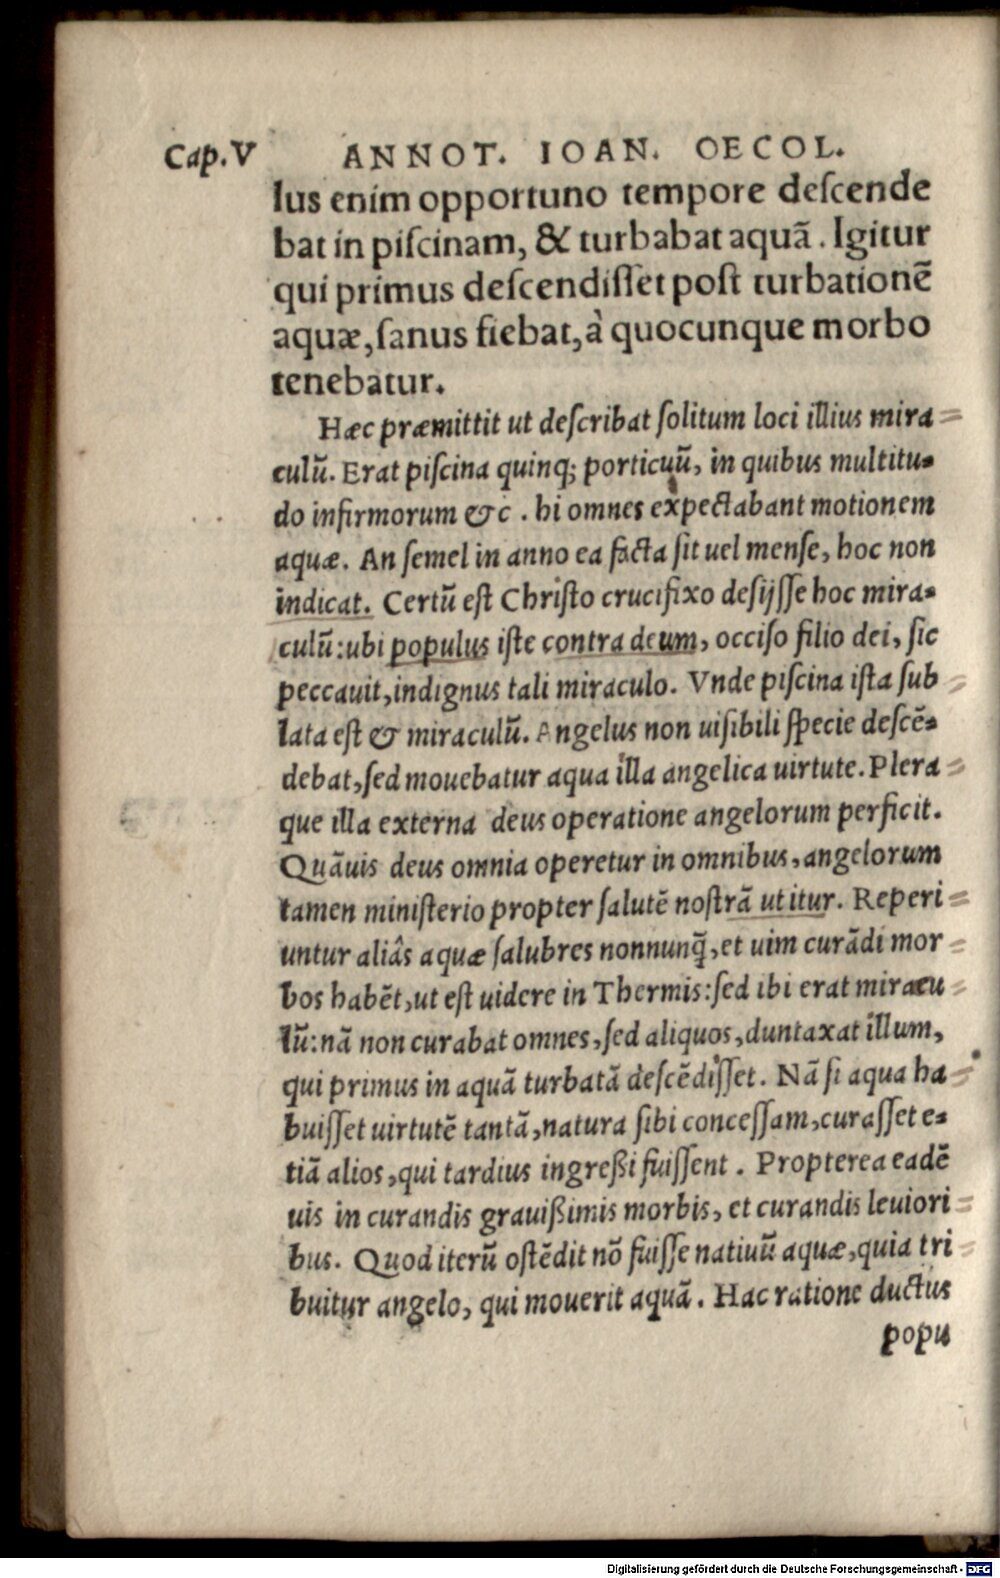 Cap.V ANNOT. IOAN. OECOL.
lus enim opportuno tempore descende
bat in piscinam, & turbabat aquã. Igitur
qui primus descendisset post turbationẽ
aquæ, sanus fiebat, à quocunque morbo
tenebatur.
Hæc præmittit ut describat solitum loci illius mira
culũ. Erat piscina quinq; porticuũ, in quibus multitu-
do infirmorum &c. hi omnes expectabant motionem
aquæ. An semel in anno ea facta sit uel mense, hoc non
indicat. Certũ est Christo crucifixo desijsse hoc mira-
culũ: ubi populus iste contra deum, occiso filio dei, sic
peccauit, indignus tali miraculo. Vnde piscina ista sub
lata est & miraculũ. Angelus non uisibili specie descẽ-
debat, sed mouebatur aqua illa angelica uirtute. Plera
que illa externa deus operatione angelorum perficit.
Quãuis deus omnia operetur in omnibus, angelorum
tamen ministerio propter salutẽ nostrã utitur. Reperi
untur aliâs aquæ salubres nonnunq̃, et uim curãdi mor
bos habẽt, ut est uidere in Thermis: sed ibi erat miracu
lũ: nã non curabat omnes, sed aliquos, duntaxat illum,
qui primus in aquã turbatã descẽdisset. Nã si aqua ha
buisset uirtutẽ tantã, natura sibi concessam, curasset e-
tiã alios, qui tardius ingreßi fuissent. Propterea eadẽ
uis in curandis grauißimis morbis, et curandis leuiori
bus. Quod iterũ ostẽdit nõ fuisse natiuũ aquæ, quia tri
buitur angelo, qui mouerit aquã. Hac ratione ductus
popu
Digitalisierung gefördert durch die Deutsche Forschungsgemeinschaft - DFG